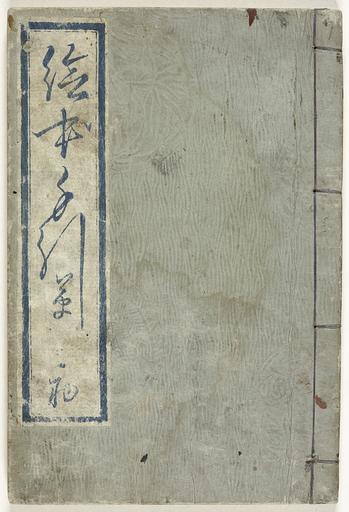 絵本手引草 初